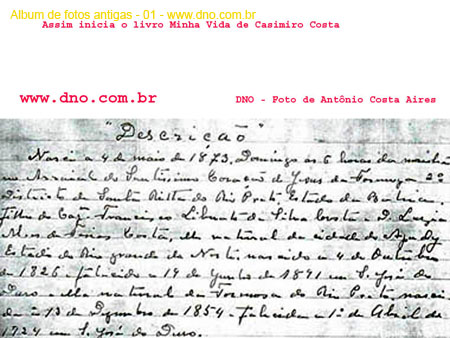 Album de fotos antigas - 01 - www.dno.com.br
Assim inicia o livro Minha Vida de Casimiro Costa
www.dno.com.br
DNO - Foto de Antônio Costa Aires
"Descrição"
Nasci a 4 de maio de 1873, Domingo ás 6 horas da manhã
no Arraial do Santissimo Coração de Jesus da Formoza 2º
Districto de Santa Ritta do Rio Preto, Estado da Bahia.
Filho do Cap. Francisco Liberato da Silva Costa D. Luzia
de Costa, elle natural da cidade do
Estado do Rio grande do Norte, nascido a 4 de Outubro
de 1826, falicido a 19 de Junho de 1891 em S. José do
Duro. Ella natural da Formosa do Rio Preto, nasci
da a 13 de Dezembro de 1854 - falicida a 1º de Abril de
1924 em S. José do Duro.